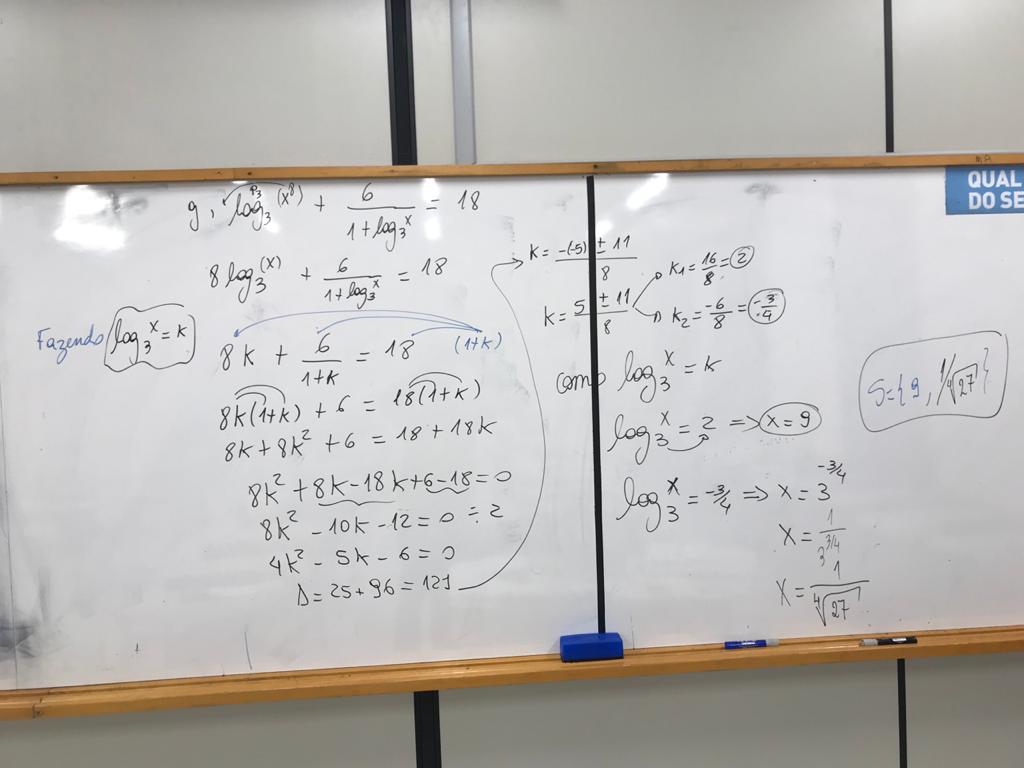 9, log₃(x⁸) + 6/(1+log₃x) = 18
P₃
8log₃(x) + 6/(1+log₃x) = 18
Fazendo log₃x = k
8k + 6/(1+k) = 18 (1+k)
8k(1+k) + 6 = 18(1+k)
8k + 8k² + 6 = 18 + 18k
8k² + 8k - 18k + 6 - 18 = 0
8k² - 10k - 12 = 0 ÷ 2
4k² - 5k - 6 = 0
Δ = 25 + 96 = 121
k = (-(-5) ± 11)/8
k = (5 ± 11)/8
k₁ = 16/8 = 2
k₂ = -6/8 = -3/4
como log₃x = k
log₃x = 2 => x = 9
log₃x = -3/4 => x = 3^(-3/4)
x = 1/3^(3/4)
x = 1/⁴√27
S = {9, 1/⁴√27}
QUAL
DO SE